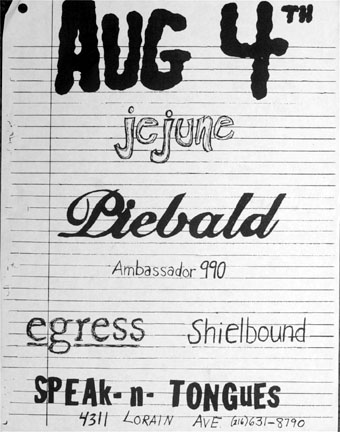 AUG 4TH
jejune
Piebald
Ambassador 990
egress Shielbound
SPEAK-n-TONGUES
4311 LORAIN AVE (216)631-8790